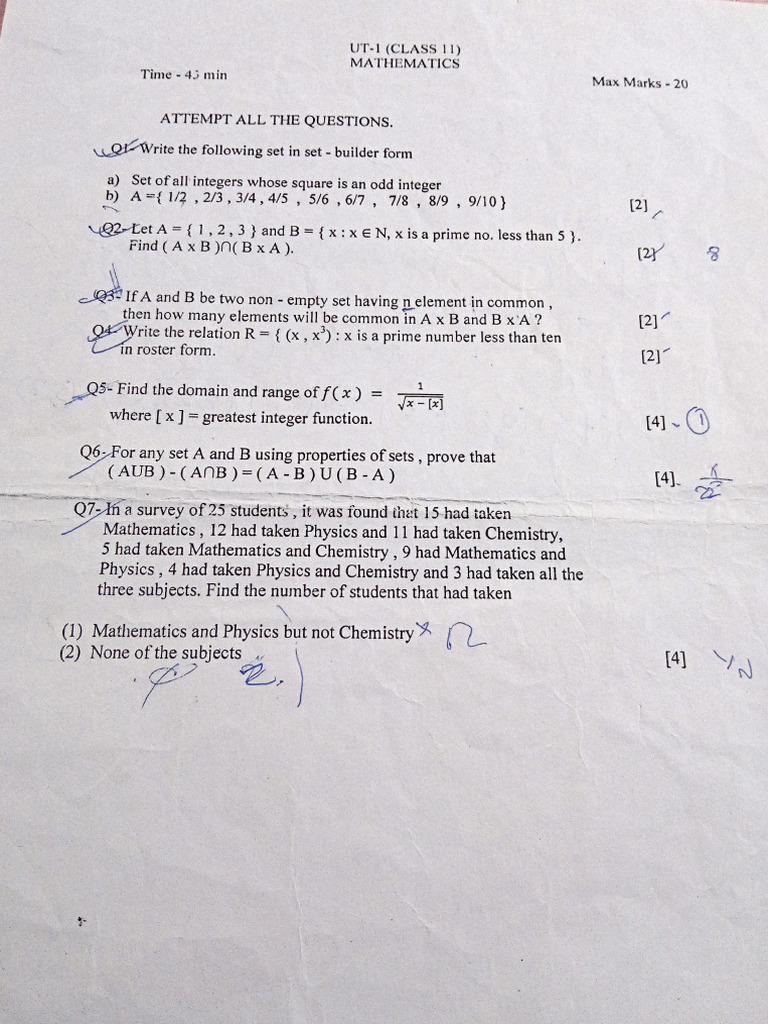 UT-1 (CLASS 11)
MATHEMATICS
Time - 45 min
Max Marks - 20
ATTEMPT ALL THE QUESTIONS.
Q1- Write the following set in set - builder form
a) Set of all integers whose square is an odd integer
b) A ={ 1/2 , 2/3 , 3/4 , 4/5 , 5/6 , 6/7 , 7/8 , 8/9 , 9/10 } [2]
Q2- Let A = { 1 , 2 , 3 } and B = { x : x ∈ N, x is a prime no. less than 5 }.
Find ( A x B )∩( B x A ). [2] 8
Q3- If A and B be two non - empty set having n element in common ,
then how many elements will be common in A x B and B x A ? [2]
Q4- Write the relation R = { (x , x³) : x is a prime number less than ten
in roster form. [2]
Q5- Find the domain and range of f( x ) = 1/√(x – [x])
where [ x ] = greatest integer function. [4] 1
Q6- For any set A and B using properties of sets , prove that
( AUB ) - ( A∩B ) = ( A - B ) U ( B - A ) [4]
Q7- In a survey of 25 students , it was found that 15 had taken
Mathematics , 12 had taken Physics and 11 had taken Chemistry,
5 had taken Mathematics and Chemistry , 9 had Mathematics and
Physics , 4 had taken Physics and Chemistry and 3 had taken all the
three subjects. Find the number of students that had taken
(1) Mathematics and Physics but not Chemistry
(2) None of the subjects
[4]